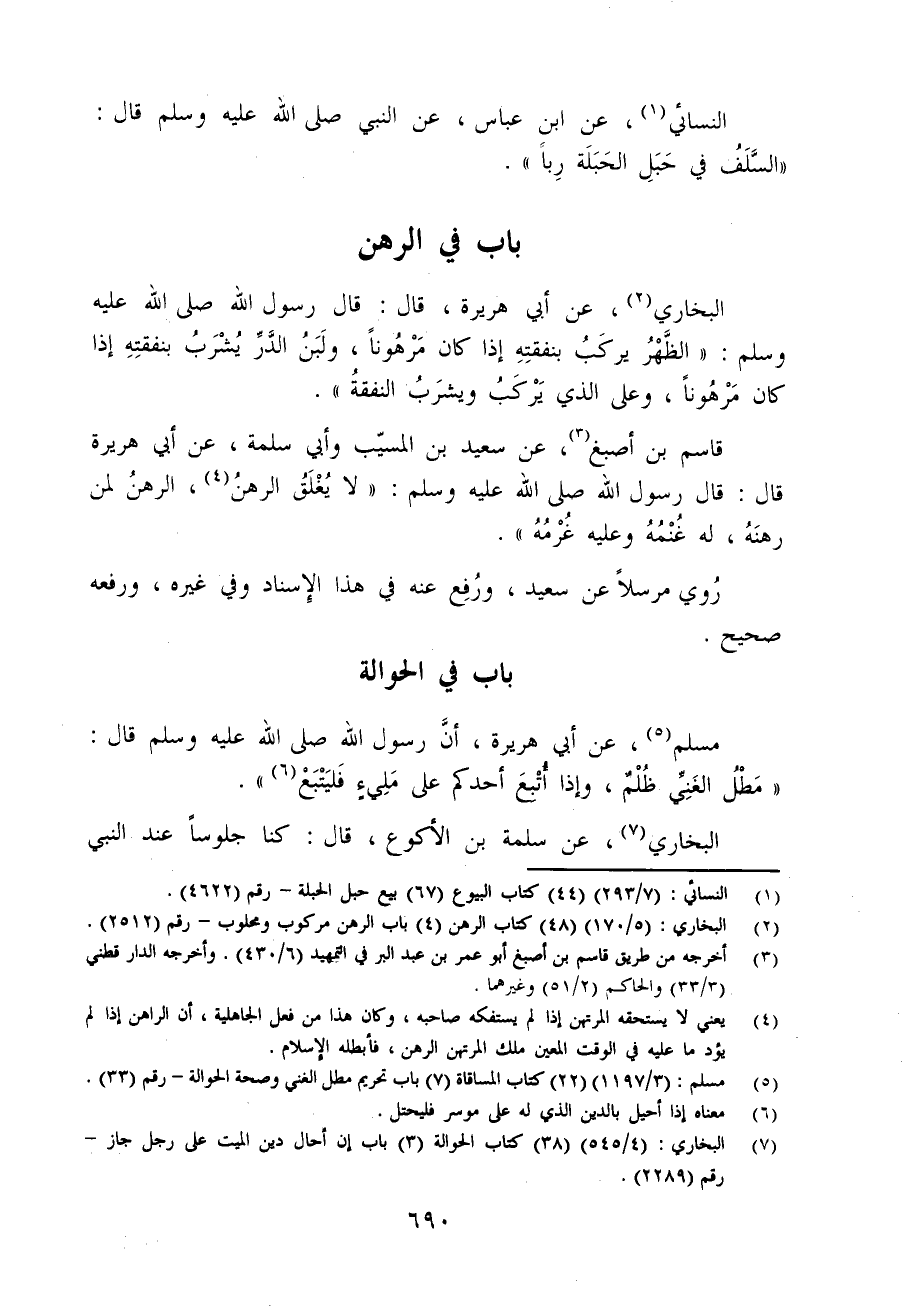 النسائي(١) ، عن ابن عباس ، عن النبي صلى الله عليه وسلم قال :
«السَّلَفُ في حَبَلِ الحَبَلَة رِباً » .
باب في الرهن
البخاري(٢) ، عن أبي هريرة ، قال : قال رسول الله صلى الله عليه
وسلم : « الظَّهْرُ يركَبُ بنفقتِهِ إذا كان مَرْهُوناً ، ولَبَنُ الدَّرِّ يُشْرَبُ بنفقتِهِ إذا
كان مَرْهُوناً ، وعلى الذي يَرْكَبُ ويشرَبُ النفقةُ » .
قاسم بن أصبغ(٣)، عن سعيد بن المسيّب وأبي سلمة ، عن أبي هريرة
قال : قال رسول الله صلى الله عليه وسلم : « لا يُغْلَقُ الرهنُ(٤) ، الرهنُ لمن
رهنَهُ ، له غُنْمُهُ وعليه غُرْمُهُ » .
رُوي مرسلاً عن سعيد ، ورُفِع عنه في هذا الإِسناد وفي غيره ، ورفعه
صحيح .
باب في الحوالة
مسلم(٥) ، عن أبي هريرة ، أنَّ رسول الله صلى الله عليه وسلم قال :
« مَطْلُ الغَنِيِّ ظُلْمٌ ، وإذا أُتْبِعَ أحدكم على مَلِيءٍ فَليَتْبَعْ(٦) » .
البخاري(٧) ، عن سلمة بن الأكوع ، قال : كنا جلوساً عند النبي
(١) النسائي : (٢٩٣/٧) (٤٤) كتاب البيوع (٦٧) بيع حبل الحبلة – رقم (٤٦٢٢) .
(٢) البخاري : (١٧٠/٥) (٤٨) كتاب الرهن (٤) باب الرهن مركوب ومحلوب – رقم (٢٥١٢) .
(٣) أخرجه من طريق قاسم بن أصبغ أبو عمر بن عبد البر في التمهيد (٤٣٠/٦) . وأخرجه الدار قطني
(٣٣/٣) والحاكم (٥١/٢) وغيرهما .
(٤) يعني لا يستحقه المرتهن إذا لم يستفكه صاحبه ، وكان هذا من فعل الجاهلية ، أن الراهن إذا لم
يؤد ما عليه في الوقت المعين ملك المرتهن الرهن ، فأبطله الإسلام .
(٥) مسلم : (١١٩٧/٣) (٢٢) كتاب المساقاة (٧) باب تحريم مطل الغني وصحة الحوالة – رقم (٣٣) .
(٦) معناه إذا أحيل بالدين الذي له على موسر فليحتل .
(٧) البخاري : (٥٤٥/٤) (٣٨) كتاب الحوالة (٣) باب إن أحال دين الميت على رجل جاز –
رقم (٢٢٨٩) .
٦٩٠